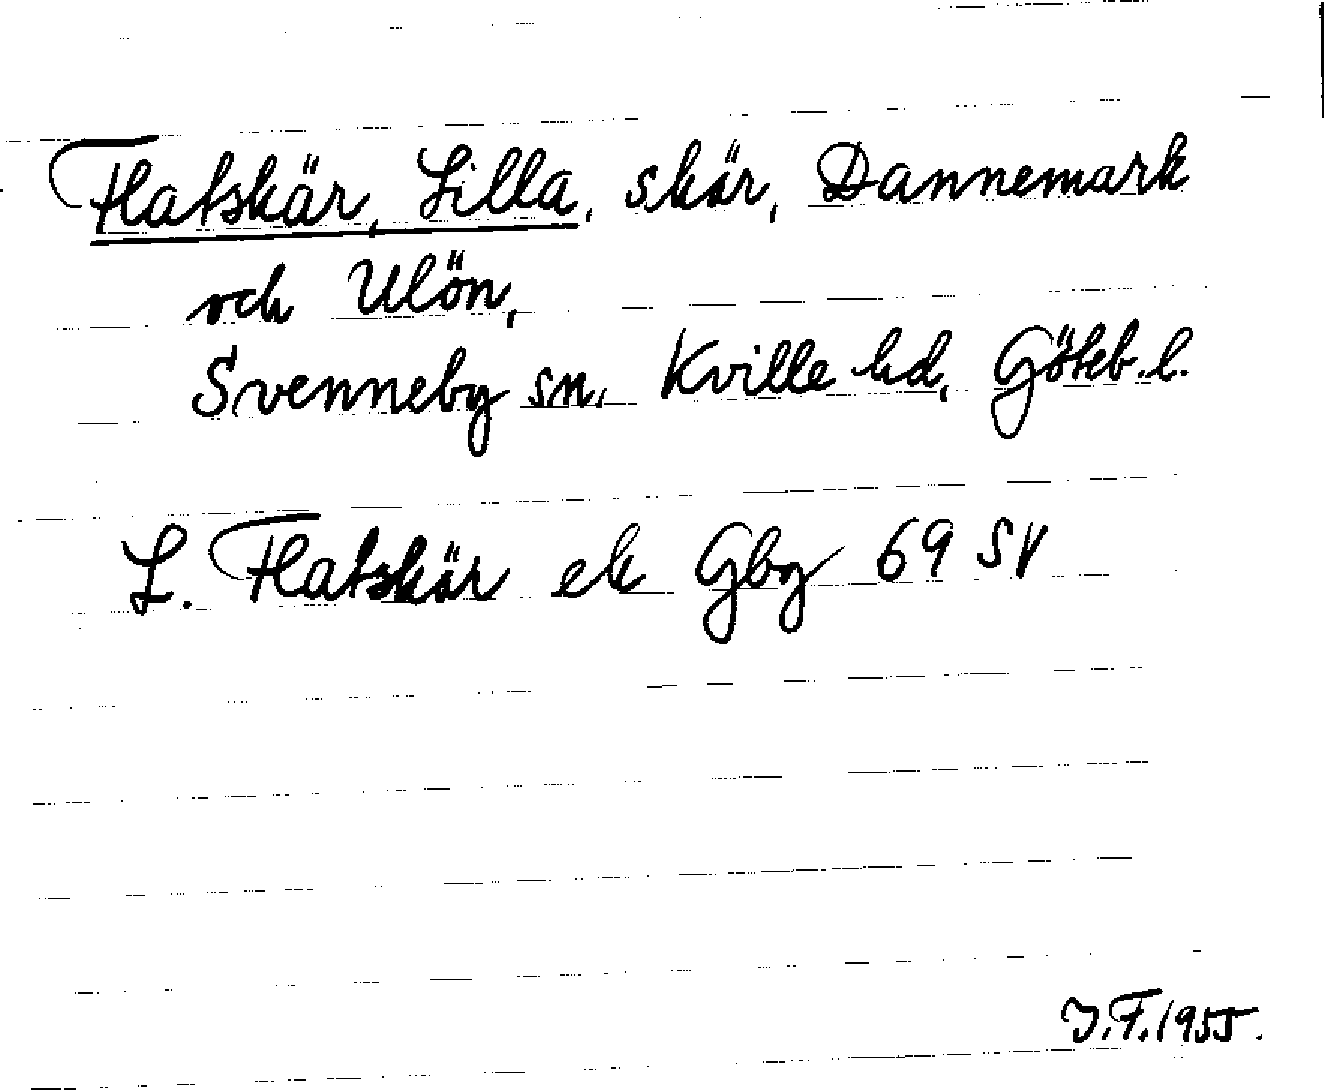 Flatskär, Lilla, skär, Dannemark
och Ulön,
Svenneby sn. Kville hd, Göteb. l.
L. Flatskär ek Gbg 69 SV
J.F. 1955.